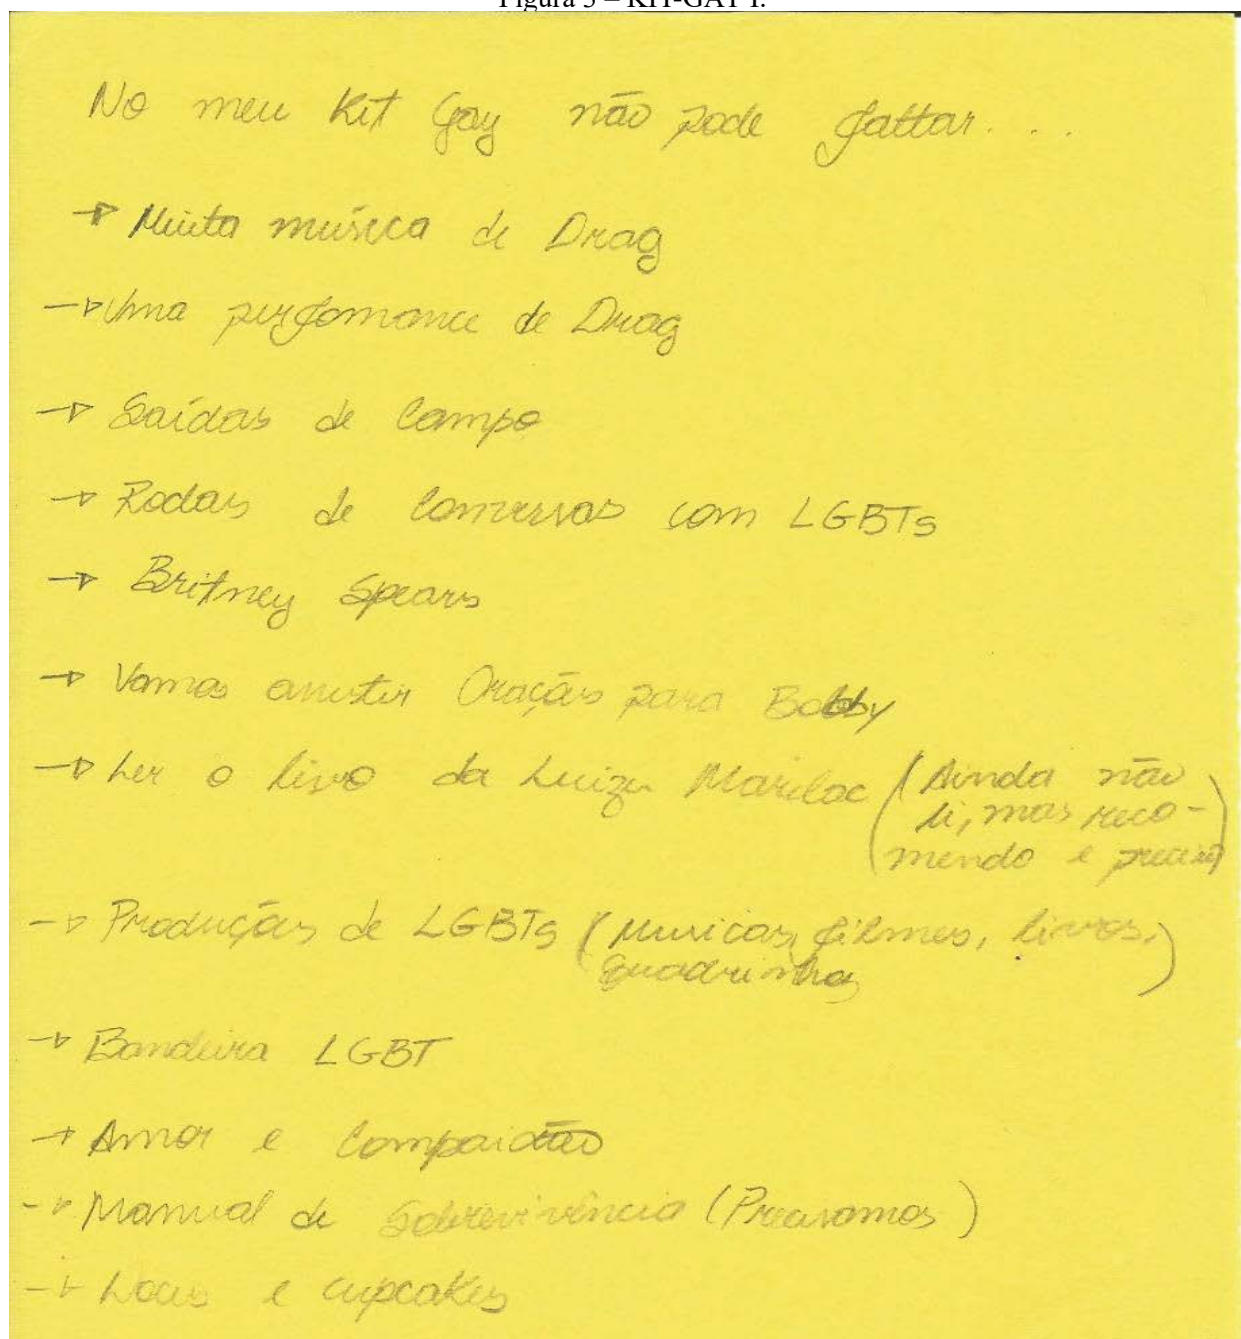 Figura 3 – KIT-GAY I.
No meu Kit Gay não pode faltar...
→ Muita música de Drag
→ Uma perfomance de Drag
→ Saídas de Campo
→ Rodas de Conversas com LGBTs
→ Britney Spears
→ Vamos assistir Orações para Bobby
→ Ler o livro da Luiza Marilac (Ainda não
li, mas reco-
mendo e preciso)
→ Produções de LGBTs (Musicas, filmes, livros,
Quadrinhos)
→ Bandeira LGBT
→ Amor e Compaixão
→ Manual de Sobrevivência (Precisamos)
→ e cupcakes